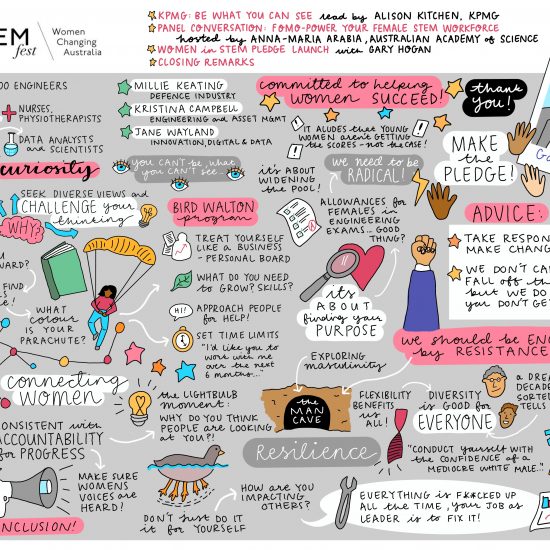 EM
fest
Women
Changing
Australia
KPMG: BE WHAT YOU CAN SEE read by ALISON KITCHEN, KPMG
PANEL CONVERSATION: FOMO-POWER YOUR FEMALE STEM WORKFORCE
hosted by ANNA-MARIA ARABIA, AUSTRALIAN ACADEMY of SCIENCE
WOMEN in STEM PLEDGE LAUNCH with GARY HOGAN
CLOSING REMARKS
OO ENGINEERS
NURSES,
PHYSIOTHERAPISTS
DATA ANALYSTS
and SCIENTISTS
MILLIE KEATING
DEFENCE INDUSTRY
KRISTINA CAMPBELL
ENGINEERING and ASSET MGMT
JANE WAYLAND
INNOVATION, DIGITAL & DATA
committed to helping
women SUCCEED!
thank
you!
IT ALUDES that YOUNG
WOMEN aren't GETTING
the SCORES - not the CASE!
curiosity
you can't be what
you can't see...
it's about
WIDENING
the POOL!
we need to be
RADICAL!
MAKE
the
PLEDGE!
G
SEEK DIVERSE VIEWS and
CHALLENGE your
thinking
WHY?
BIRD WALTON
program
ALLOWANCES for
FEMALES in
ENGINEERING
EXAMS... GOOD
THING?
ADVICE:
TREAT YOURSELF
LIKE a BUSINESS
- PERSONAL BOARD
TAKE RESPON
MAKE CHANG
WARD?
FIND
ES
E!
WHAT DO YOU NEED
to GROW? SKILLS?
WE DON'T CA
FALL off the
but WE DO
you DON'T GET
WHAT
colour
IS YOUR
PARACHUTE?
HI!
APPROACH PEOPLE
for HELP!
it's
ABOUT
finding your
PURPOSE
SET TIME LIMITS
"I'd like you to
work with me
over the next
6 months..."
we should be EN
by RESISTANCE
EXPLORING
masculinity
connecting
WOMEN
the LIGHTBULB
moment:
WHY DO YOU THINK
PEOPLE are LOOKING
at YOU?!
the
MAN
CAVE
FLEXIBILITY
BENEFITS
us ALL!
DIVERSITY
is GOOD for
EVERYONE
a DREA
DECADE
SORTED
TELLS
ONSISTENT with
ACCOUNTABILITY
for PROGRESS
Resilience
"CONDUCT yourself with
the CONFIDENCE of a
MEDIOCRE WHITE MALE."
MAKE SURE
WOMENS
VOICES are
HEARD?
HOW are YOU
IMPACTING
OTHERS?
DON'T JUST DO IT
it for YOURSELF
EVERYTHING is F✱✱CKED UP
ALL the TIME, your JOB as
LEADER is to FIX it!
NCLUSION!